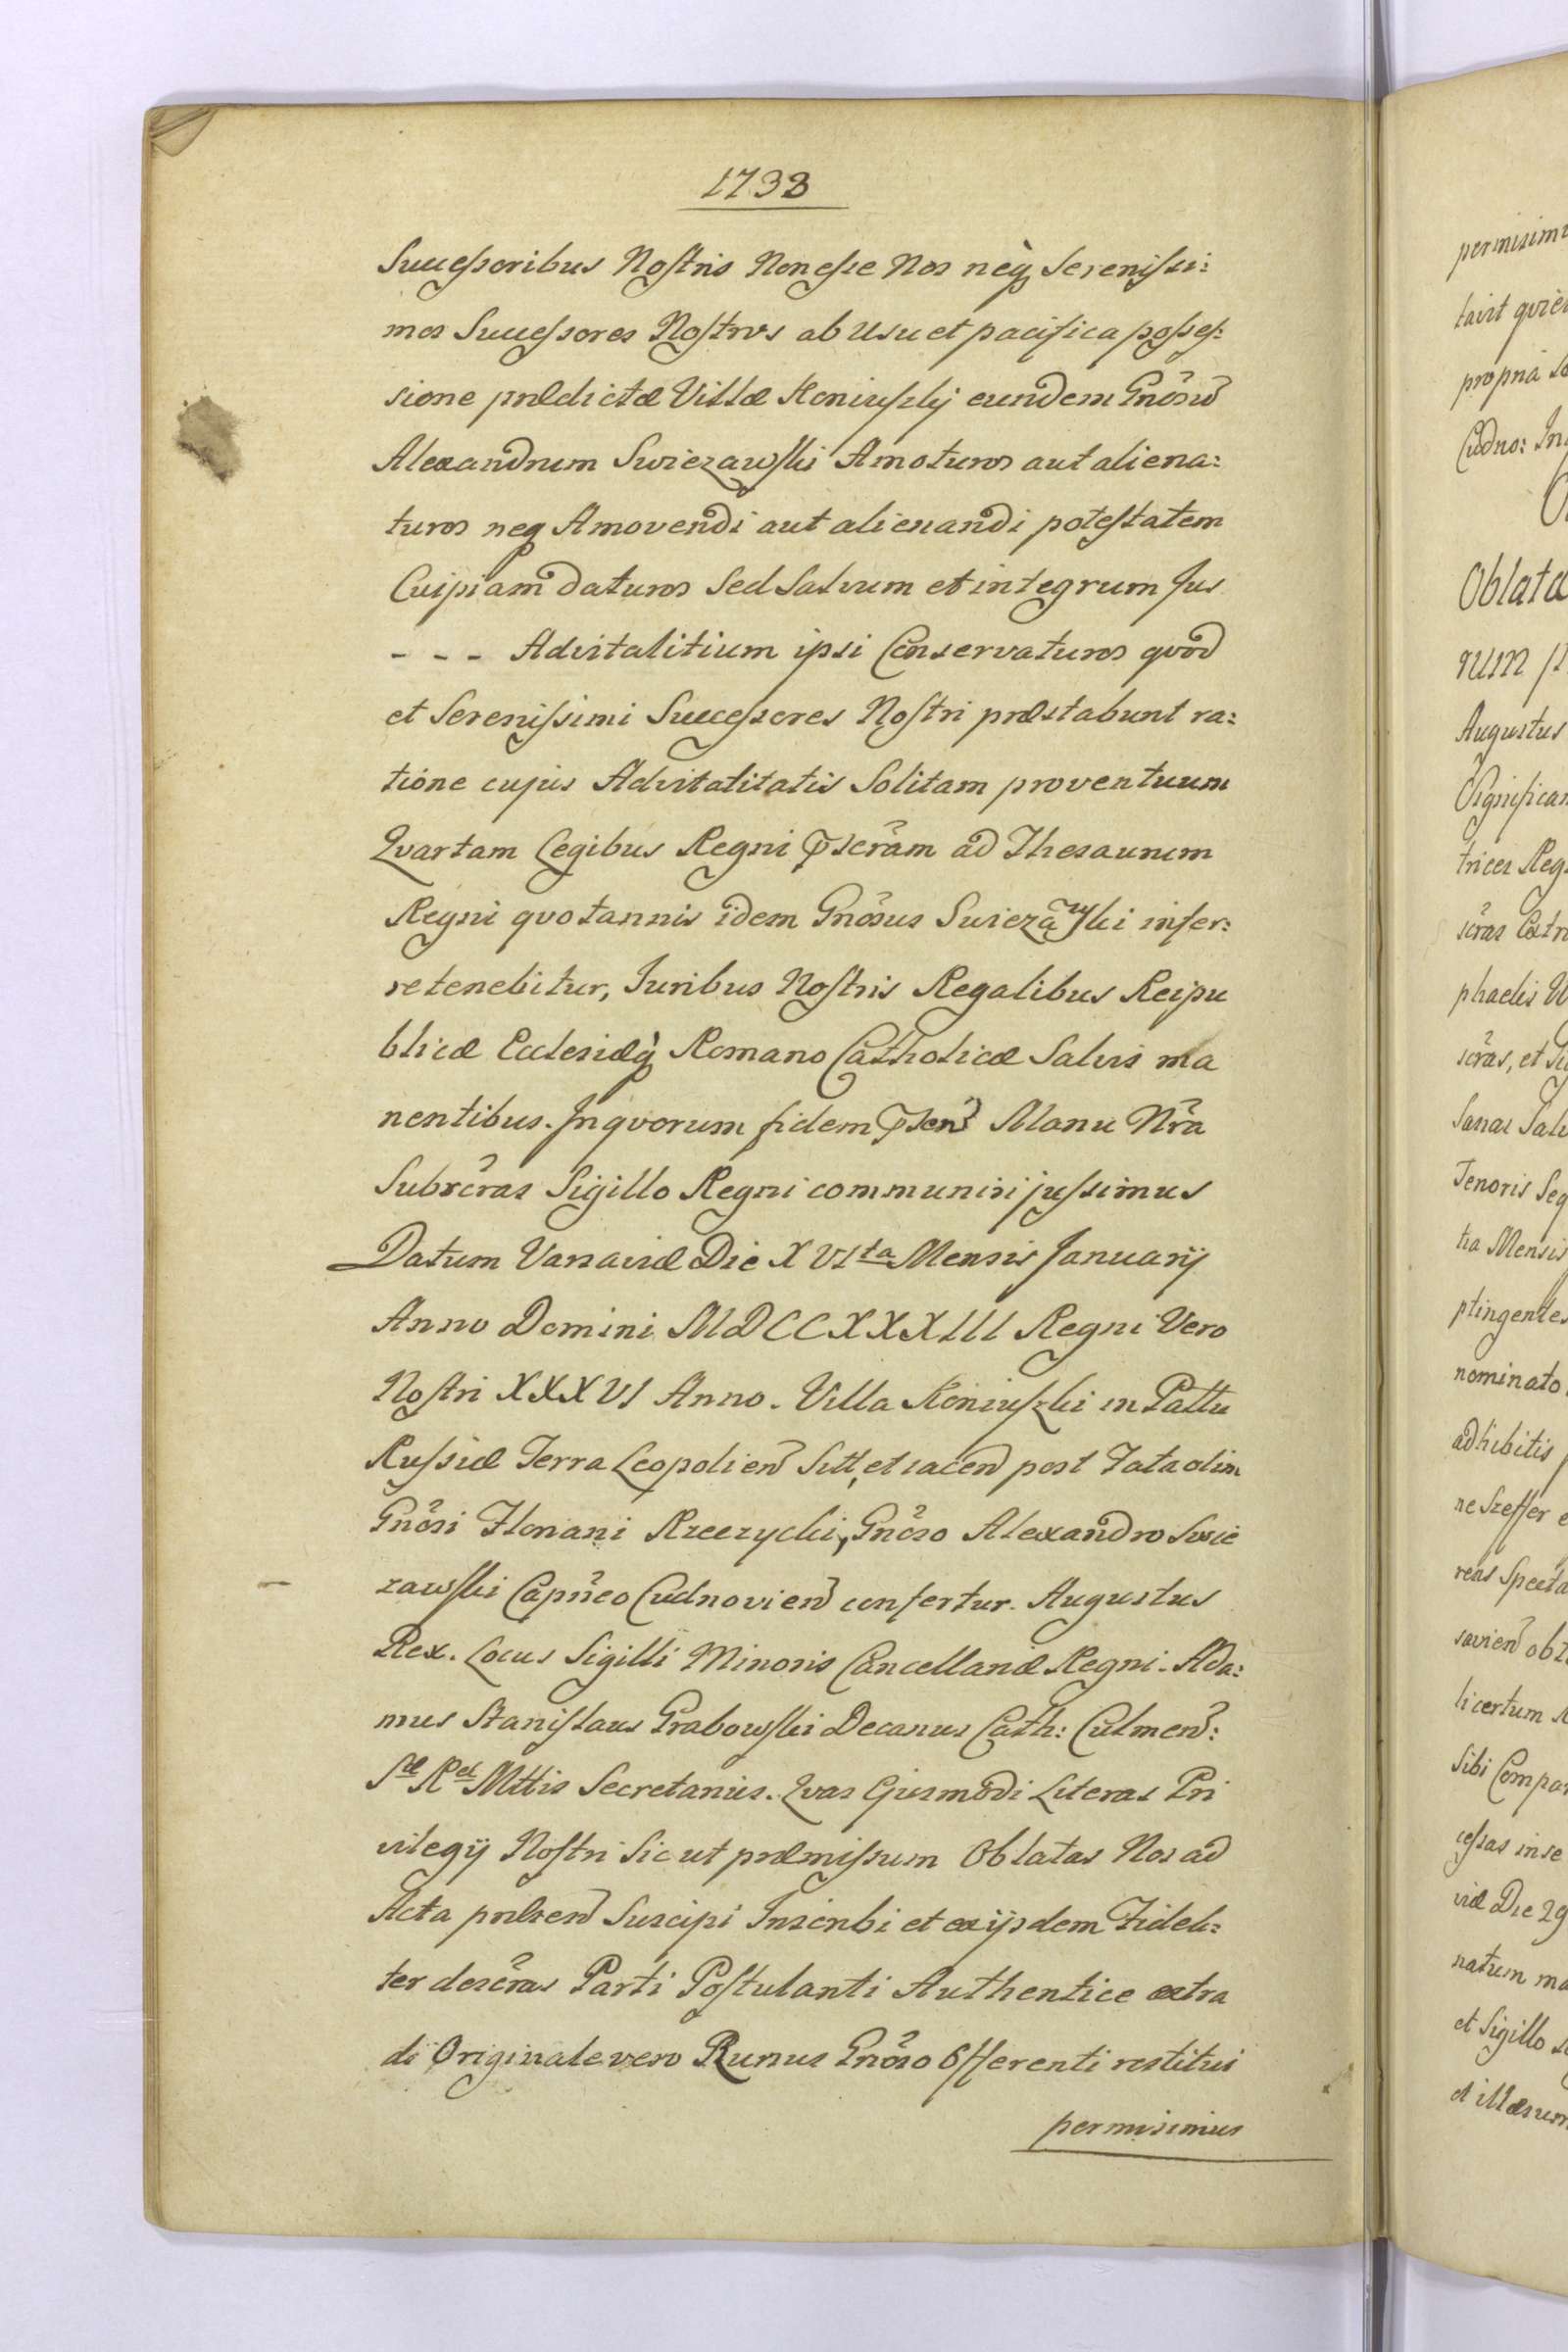 1733
Successoribus Nostris Non esse Nos neq̀ Serenissi:
mos Successores Nostros ab Usu et pacifica posses:
sione prædictæ Villæ Koniuszky eundem Gnõsũ
Alexandrum Swiezawski Amoturos aut aliena:
turos neq Amovendi aut alienandi potestatem
Cuipiam daturos Sed Salvum et integrum Jus
- - - Advitalitium ipsi Conservaturos qvod
et Serenissimi Successores Nostri præstabunt ra:
tione cujus Advitalitatis Solitam proventuum
Qvartam Legibus Regni pscrãm ad Thesaurum
Regni qvotannis idem Gnõsus Swiezawski infer:
re tenebitur, Juribus Nostris Regalibus Reipu
blicæ Ecclesiæq̀ Romano Catholicæ Salvis ma
nentibus. In qvorum fidem psen̄ Manu Nrã
Subscrãs Sigillo Regni communiri jussimus
Datum Varsaviæ Die XVIta Mensis Januarij
Anno Domini MDCCXXXIII Regni Vero
Nostri XXXVI Anno. Villa Koniuszki in Pallu
Russiæ Terra Leopolien̄ Sitt, et iacen̄ post Fata olim
Gnõsi Floriani Rzeczycki, Gnõso Alexandro Swie
zawski Capñeo Cudnovien̄ confertur. Augustus
Rex. Locus Sigilli Minoris Cancellariæ Regni. Ada:
mus Stanislaus Grabowski Decanus Cath: Culmen̄:
Sæ Ræ Mttis Secretarius. Qvas Ejusmodi Literas Pri
vilegij Nostri Sicut præmissum Oblatas Nos ad
Acta præsen̄ Suscipi Inscribi et ex ijsdem Fideli:
ter descrãs Parti Postulanti Authentice extra
di Originale vero Rursus Gnõso Offerenti restitui
permisimus
permisimu
tavit
propria
Cudno: In
Oblata
rum
Augustus
Significam
trices Reg
scrãs Extr
phaelis
scrãs, et
Sanas Salv
Tenoris Seq
tia Mensis
ptingentes
nominato
adhibitis
ne Szeffer e
reas Specta
savien̄ obt
licertum
Sibi Compar
cessas in se
viæ Die 29
natum ma
et Sigillo
et illæsum